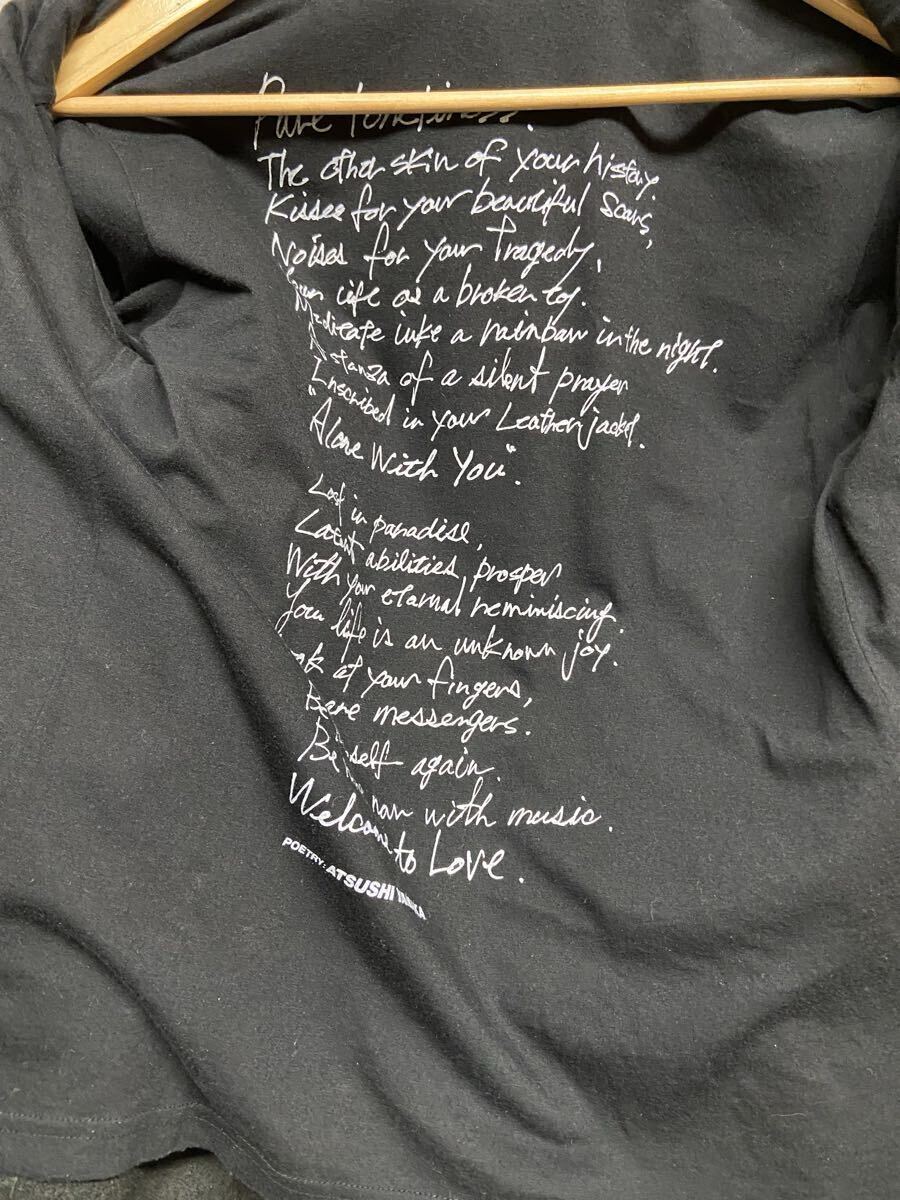 Pure loneliness.
The other skin of your history.
Kisses for your beautiful Scars,
Noises for your Tragedy,
life as a broken toy.
Meditate like a rainbow in the night.
A stanza of a silent prayer
Inscribed in your Leather jacket.
"Alone With You".
Lost in paradise,
Latent abilities, prosper
With your eternal reminiscing.
Your life is an unknown joy.
at your fingers,
Bare messengers.
Be self again.
now with music.
Welcome to Love.
POETRY: ATSUSHI TANAKA